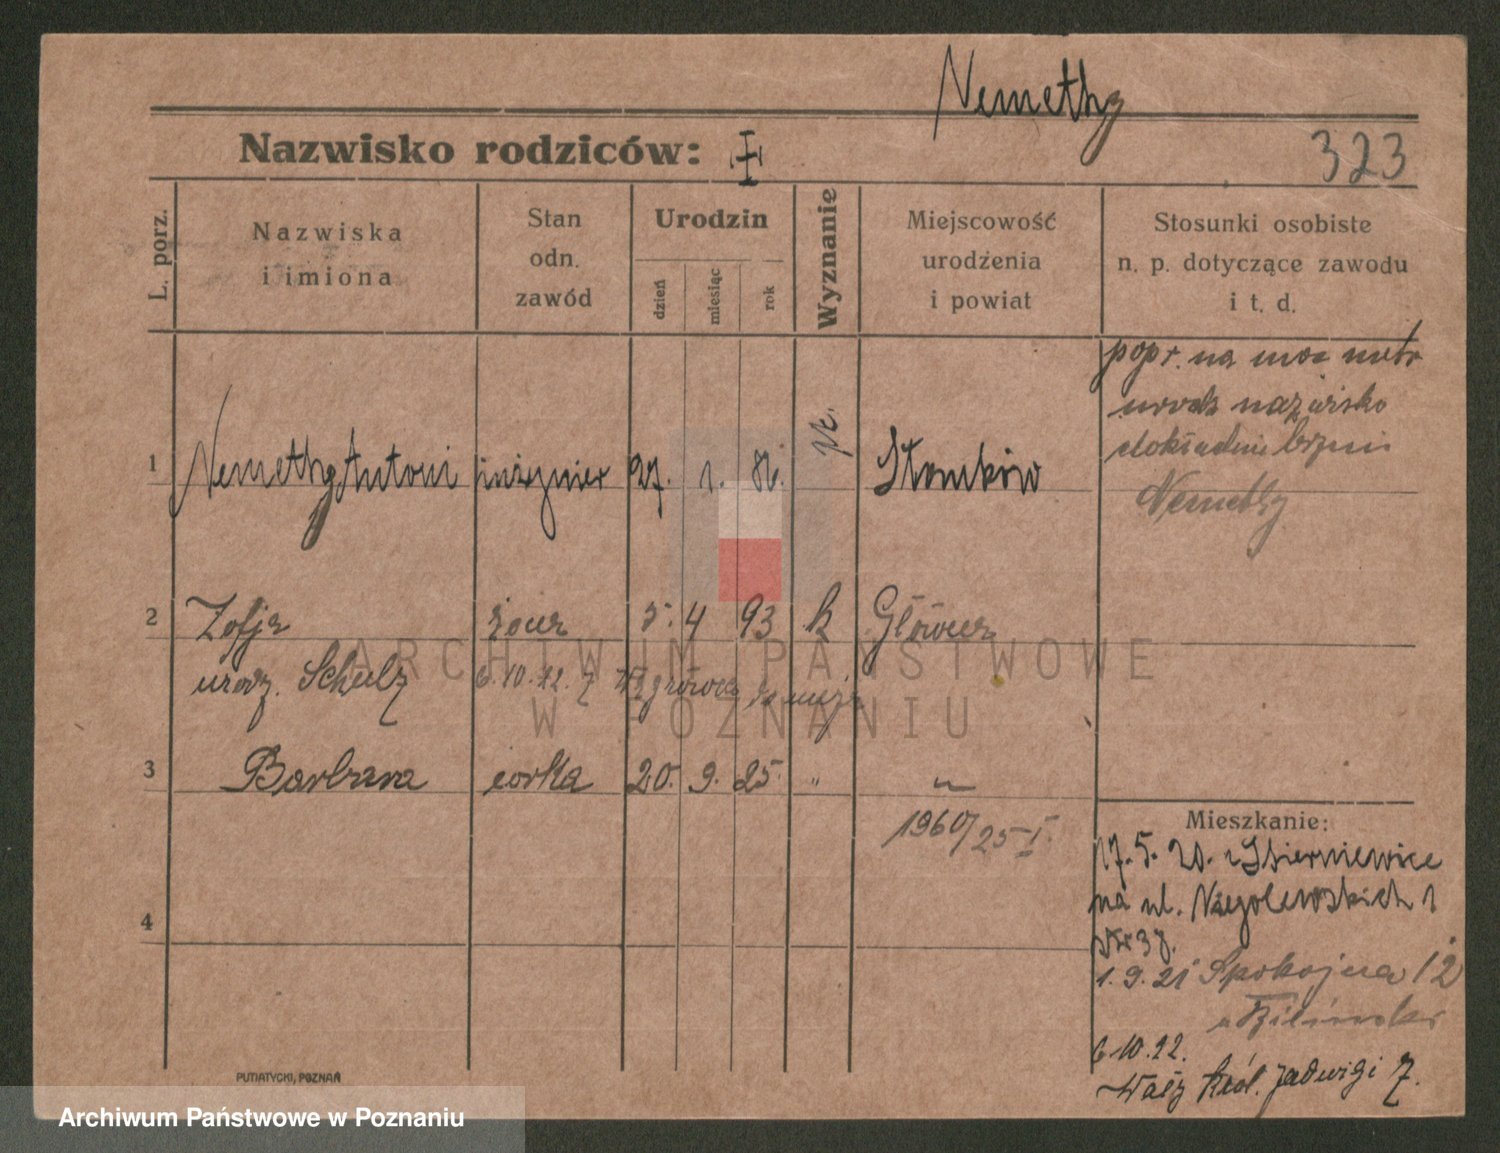 Nemethy
Nazwisko rodziców:
323
L. porz.
Nazwiska
i imiona
Stan
odn.
zawód
Urodzin
dzień
miesiąc
rok
Wyznanie
Miejscowość
urodzenia
i powiat
Stosunki osobiste
n. p. dotyczące zawodu
i t. d.
popr. na moc metr
urodz nazwisko
dokładnie brzmi
Nemethy
1 Nemethy Antoni inżynier 27. 1. 86.
2 Zofja żona 5. 4 93 k Główna
urodz. Schulz 6.10.22. z
3 Barbara corka 20. 9. 25. "
1960/25 I.
4
Mieszkanie:
17. 5. 20. z Skierniewice
na ul. Niegolewskich 1
1. 9. 21 Spokojna 12
u
6 10.22.
Wały Król. Jadwigi 7.
PUTIATYCKI, POZNAŃ
ARCHIWUM PAŃSTWOWE
W POZNANIU
Archiwum Państwowe w Poznaniu